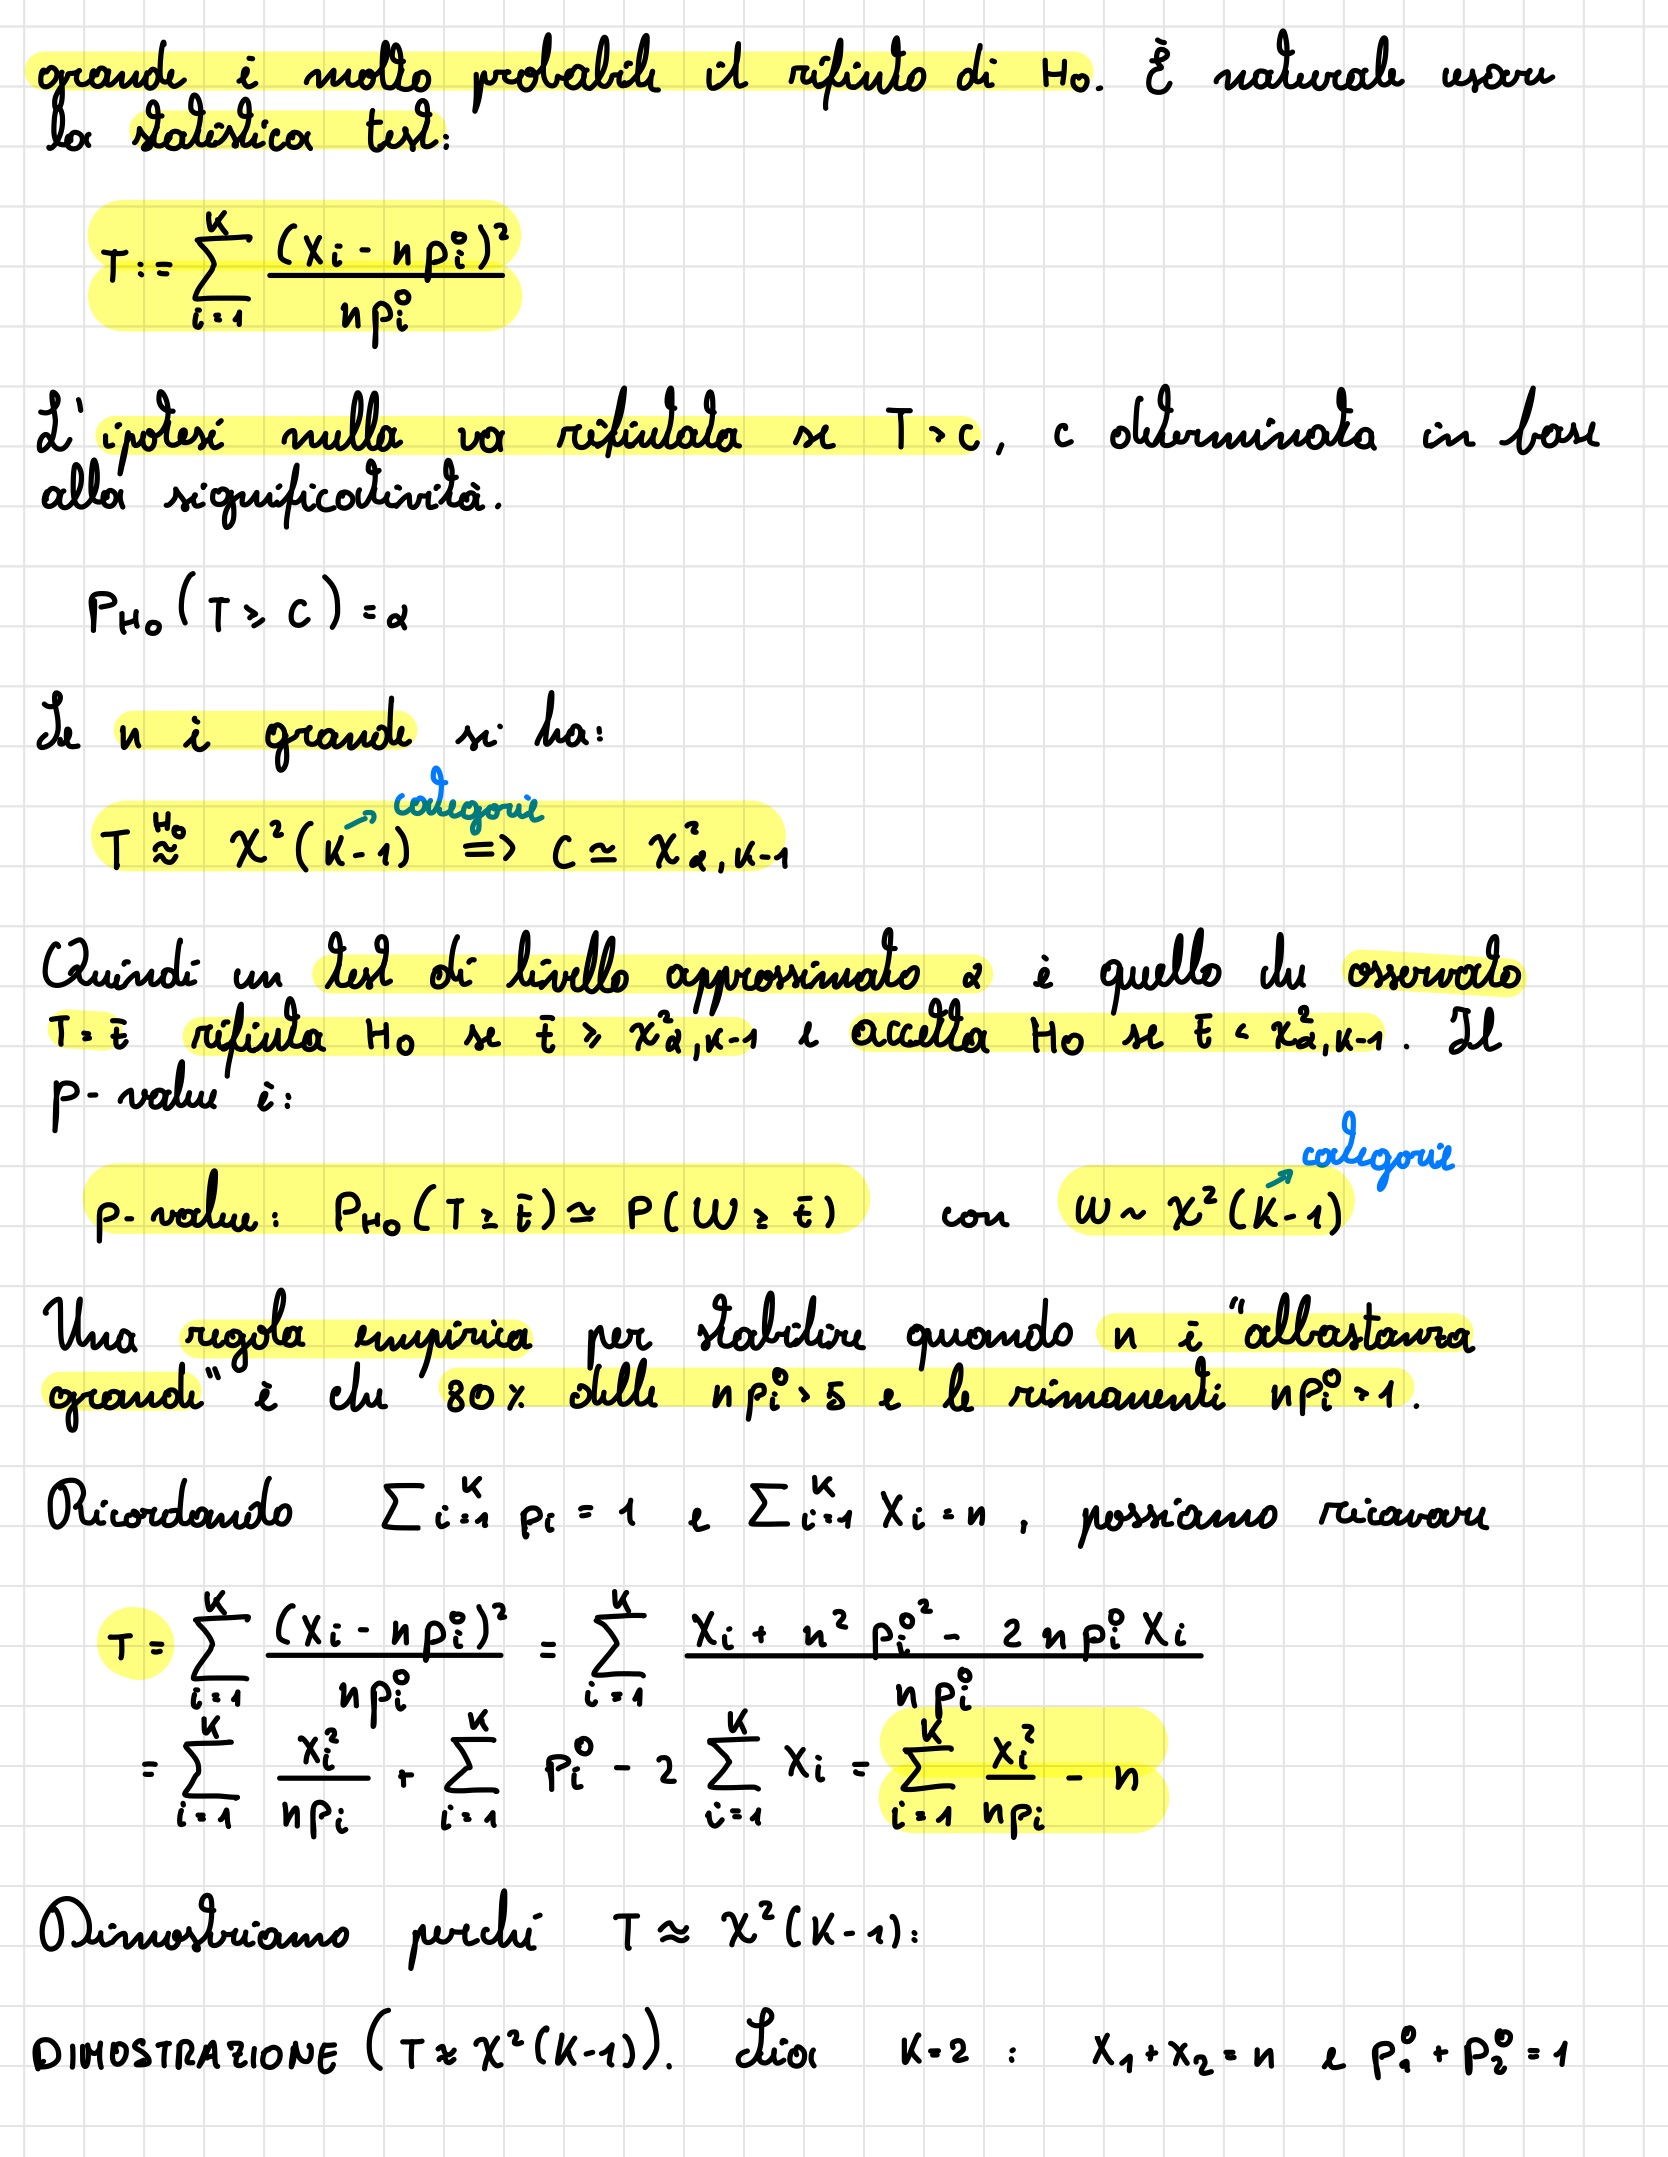 grande è molto probabile il rifiuto di H₀. È naturale usare
la statistica test:
T := ∑_{i=1}^{K} (X_i - n p_i^0)² / n p_i^0
L'ipotesi nulla va rifiutata se T > c, c determinata in base
alla significatività.
P_{H₀} (T ≥ C) = α
Se n è grande si ha:
categorie
T ≈^{H₀} χ²(K-1) => C ≃ χ²_{α, K-1}
Quindi un test di livello approssimato α è quello che osservato
T = t̄ rifiuta H₀ se t̄ ≥ χ²_{α, K-1} e accetta H₀ se t̄ < χ²_{α, K-1}. Il
p-value è:
categorie
p-value: P_{H₀}(T ≥ t̄) ≃ P(W ≥ t̄) con W ~ χ²(K-1)
Una regola empirica per stabilire quando n è "abbastanza
grande" è che 80% delle n p_i^0 > 5 e le rimanenti n p_i^0 > 1.
Ricordando ∑_{i=1}^{K} p_i = 1 e ∑_{i=1}^{K} X_i = n, possiamo ricavare
T = ∑_{i=1}^{K} (X_i - n p_i^0)² / n p_i^0 = ∑_{i=1}^{K} X_i + n² p_i^0² - 2 n p_i^0 X_i / n p_i^0
= ∑_{i=1}^{K} X_i² / n p_i + ∑_{i=1}^{K} p_i^0 - 2 ∑_{i=1}^{K} X_i = ∑_{i=1}^{K} X_i² / n p_i - n
Dimostriamo perché T ≈ χ²(K-1):
DIMOSTRAZIONE (T ≈ χ²(K-1)). Sia K=2 : X₁+X₂=n e p₁^0+p₂^0=1